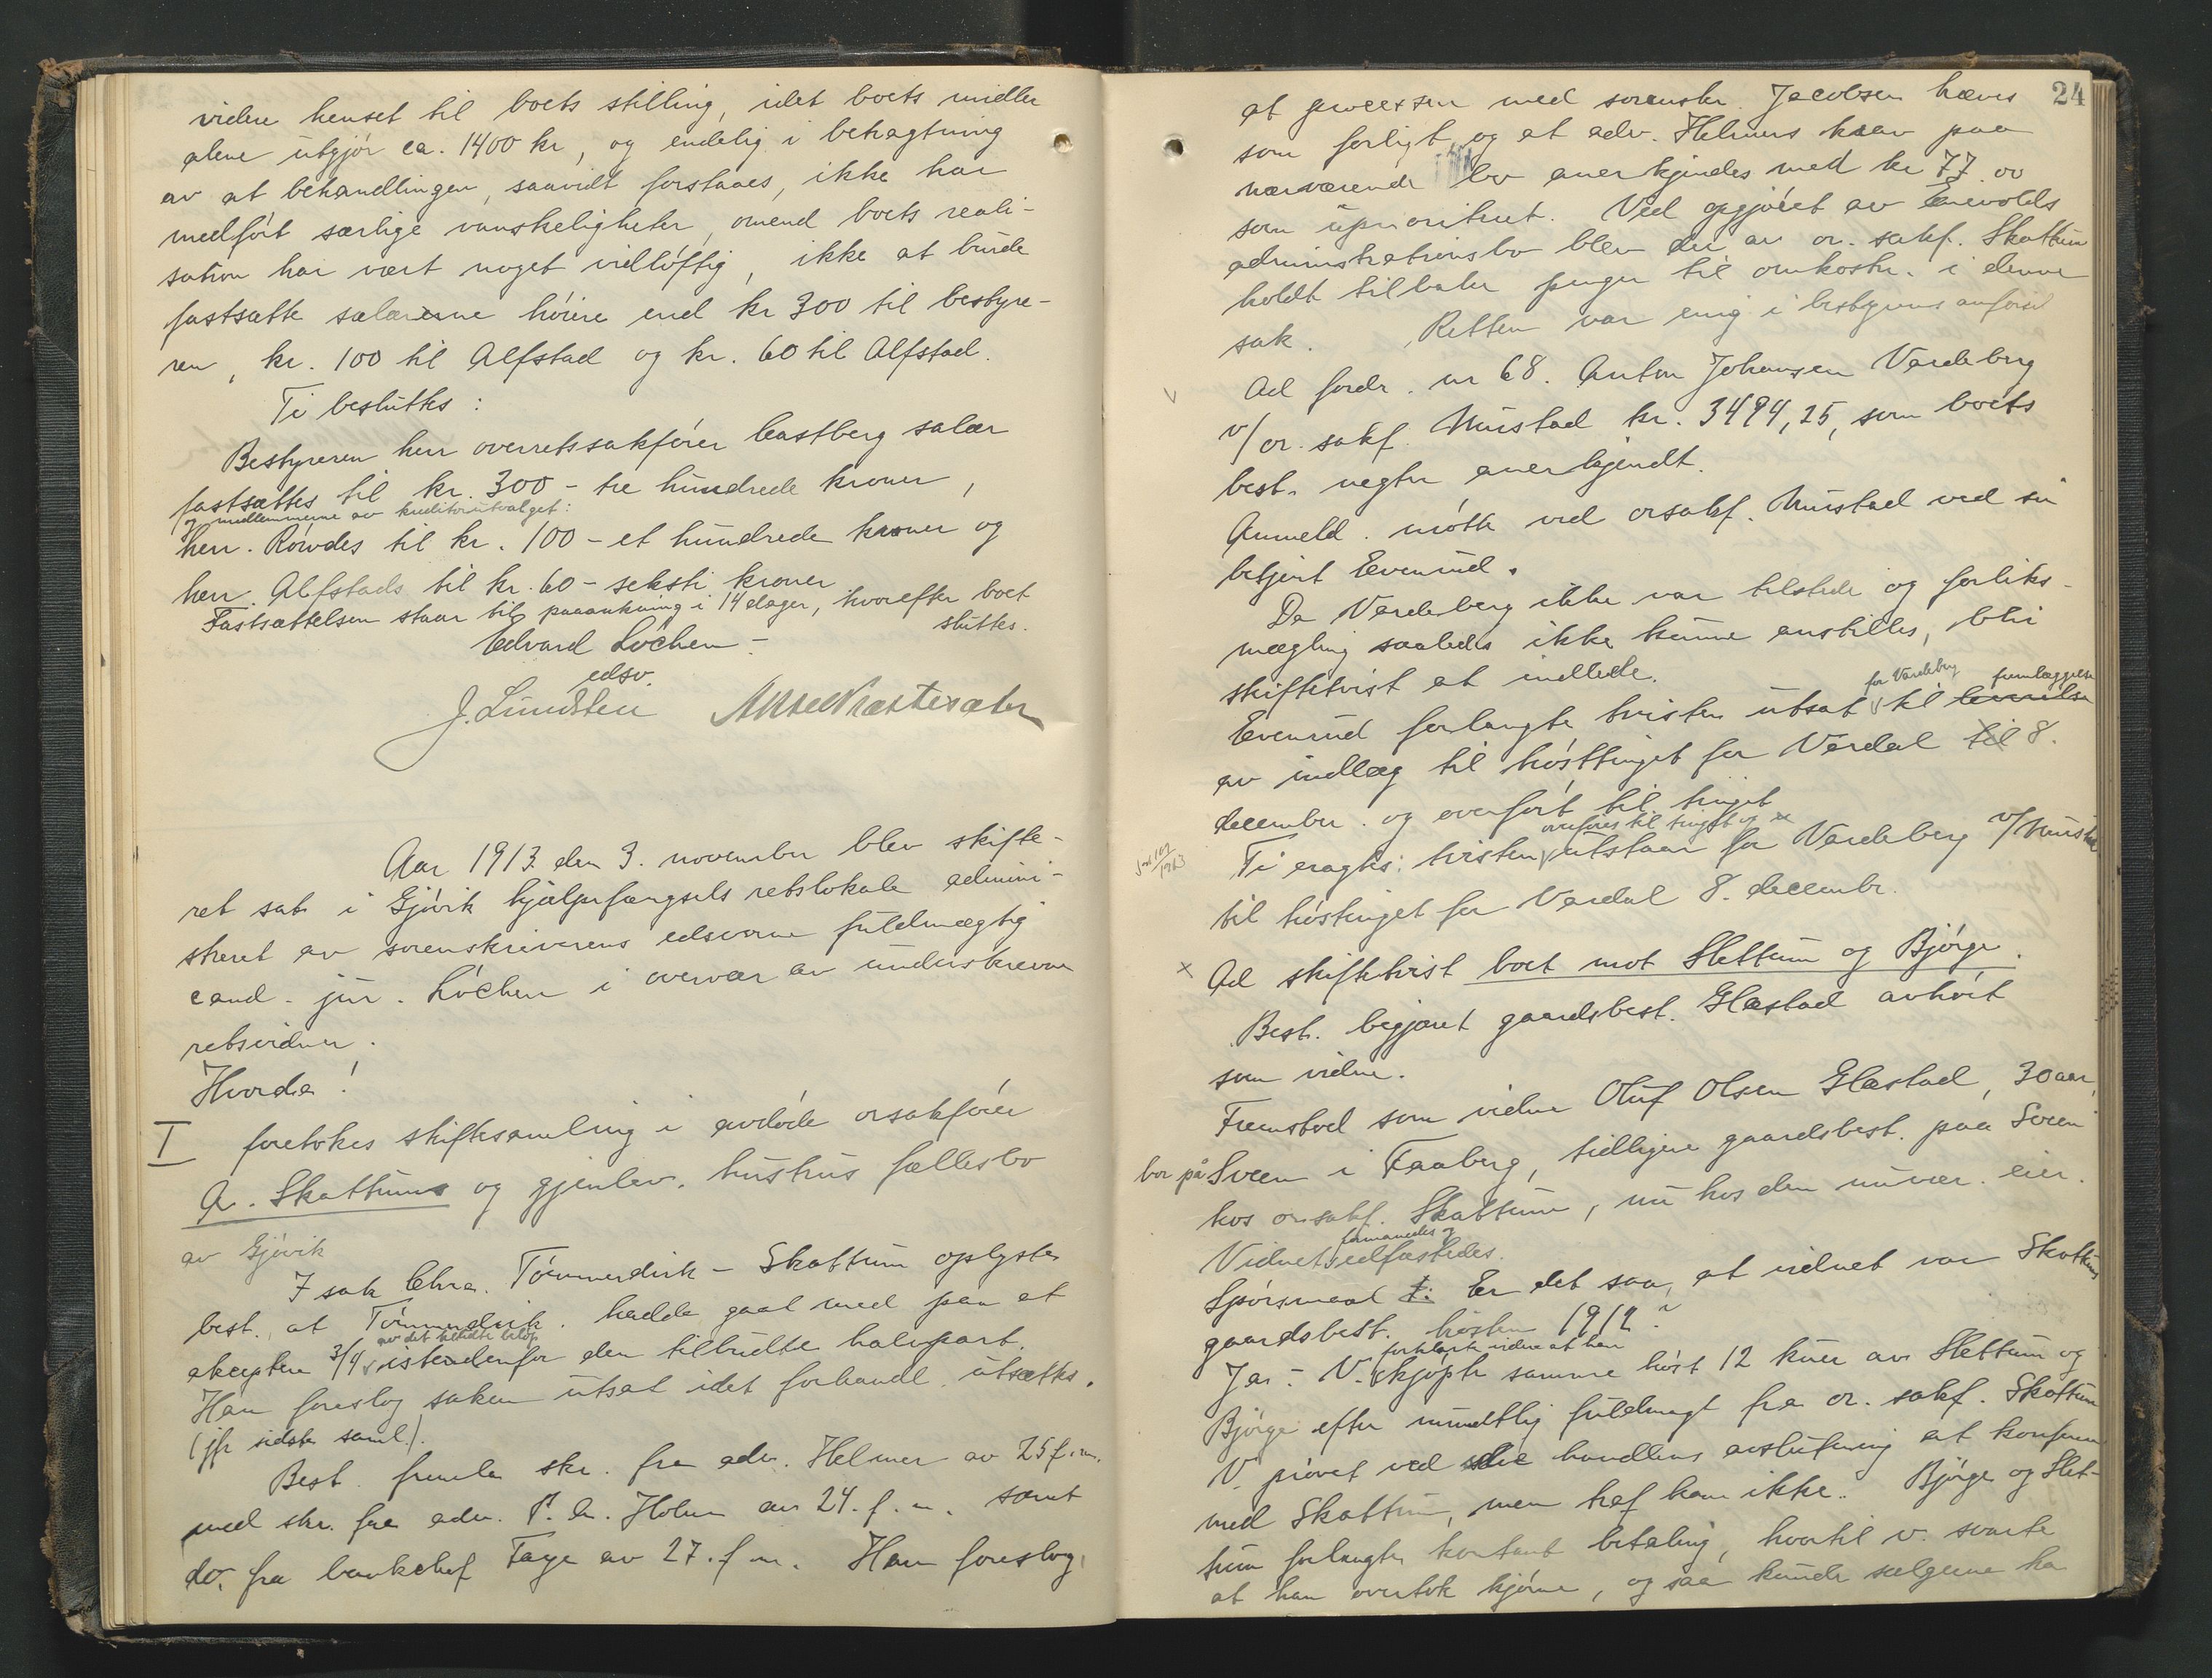 videre henset til boets stilling, idet boets midler
alene utgjør ca. 1400 kr, og endelig i betragtning
av at behandlingen, saavidt forstaaes, ikke har
medført særlige vanskeligheter, omend boets reali-
sation har vært noget vidløftig, ikke at burde
fastsætte salærerne høiere end kr 300 til bestyre-
ren, kr. 100 til Alfstad og kr. 60 til Alfstad.
Ti besluttes:
Bestyreren herr overretssakfører Castberg salær
fastsættes til kr. 300 - tre hundrede kroner,
og medlemmerne av kreditorutvalget:
herr. Røwdes til kr. 100 - et hundrede kroner og
herr. Alfstads til kr. 60 - seksti kroner
Fastsættelsen staar til paaankning i 14 dager, hvorefter boet
sluttes.
Edvard Løchen -
edsv.
J. Lundsten
Aar 1913 den 3. november blev skifte-
ret sat i Gjøvik hjælpefængsels retslokale admini-
streret av sorenskriverens edsvorne fuldmægtig
cand. jur. Løchen i overvær av underskrevne
retsvidner.
Hvorda!
I foretokes skiftesamling i avdøde orsakfører
A. Skattums og gjenlev. hustrus fællesbo
av Gjøvik
I sak Chra. Tømmerdirk - Skattum oplyste
best. at Tømmerdirk. hadde gaat med paa at
av det tilbudte beløp
akceptere 3/4 istedenfor den tilbudte halvpart.
Han foreslog saken utsat idet forhandl. utsættes.
(jfr sidste saml.).
Best. fremla skr. fra adv. Helmer av 25 f. m.
med skr. fra adv. P. A. Holm av 24. f. m. samt
do. fra bankchef Faye av 27. f. m. Han foreslog,
24
at processen med sorenskr. Jacobsen hæves
som forligt, og at adv. Helmers krav paa
nærværende bo anerkjendes med kr 77.00
som uprioritert. Ved opgjøret av Enevolds
administrationsbo blev der av or. sakf. Skattum
holdt tilbake penger til omkostn. i denne
sak. Retten var enig i bestyrerens anførsel
Ad fordr. nr 68. Anton Johansen Vardeberg
v/ or. sakf. Mustad kr. 3494,25, som boets
best. negter anerkjendt.
Anmeld. møtte ved orsakf. Mustad ved sin
betjent Evenrud.
Da Vardeberg ikke var tilstede og forliks-
mægling saaledes ikke kunne anstilles, blir
skiftetvist at indlede.
for Vardeberg fremlæggelse
Evenrud forlangte tvisten utsat til
av indlæg til høsttinget for Vardal til 8.
december. og overført til tinget
overføres til tinget og
Ti eragtes: tvisten utstaar for Vardeberg v/ Mustad
til høstinget for Vardal 8. decembr.
Ad skiftetvist boet mot Slettum og Bjørge.
Best. begjæret gaardsbest. Glæstad avhørt
som vidne.
Fremstod som vidne Oluf Olsen Glæstad, 30 aar,
bor på Sveen i Faaberg, tidligere gaardsbest. paa Sveen
hos orsakf. Skattum, nu hos den nuvær. eier.
formanedes og
Vidnet edfæstedes.
Spørsmaal 1: Er det saa, at vidnet var Skattums
gaardsbest. høsten 1912?
forklarte vidne at han
Ja. - V. kjøpte samme høst 12 kuer av Slettum og
Bjørge efter mundtlig fuldmagt fra or. sakf. Skattum
V. prøvet ved handlens avslutning at konferere
med Skattum, men traf ham ikke. Bjørge og Slet-
tum forlangte kontant betaling, hvortil v. svarte
at han overtok kjørne, og saa kunde sælgerne ha